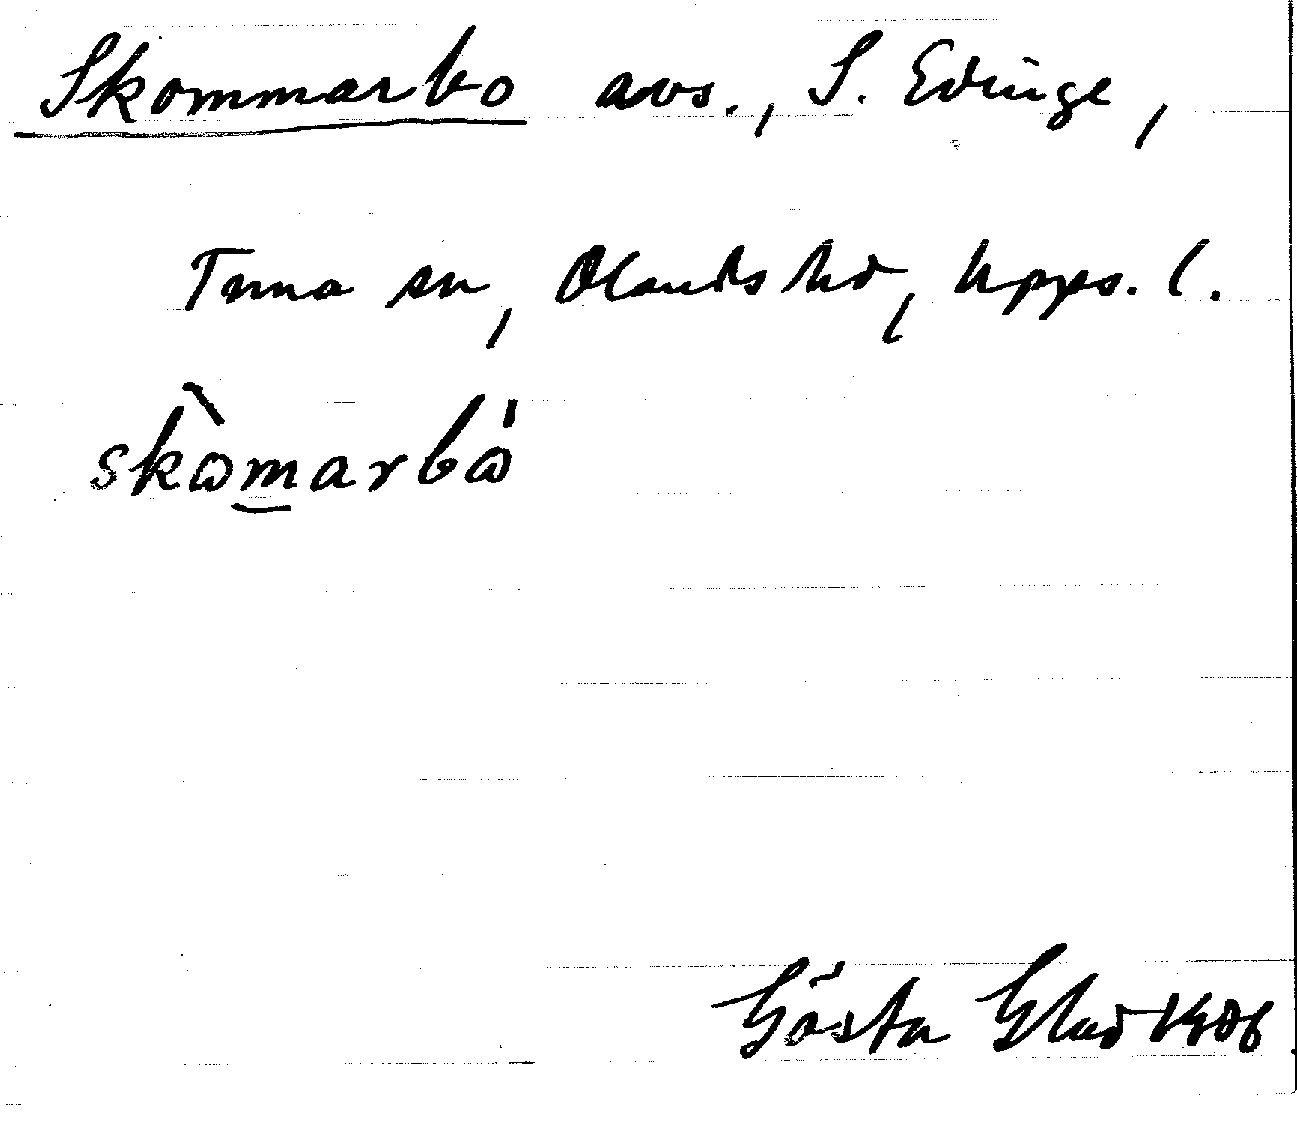 Skommarbo avs., S. Edinge,
Tuna sn, Olands hd, Upps. l.
skɷ̀marbɷ̍
Gösta